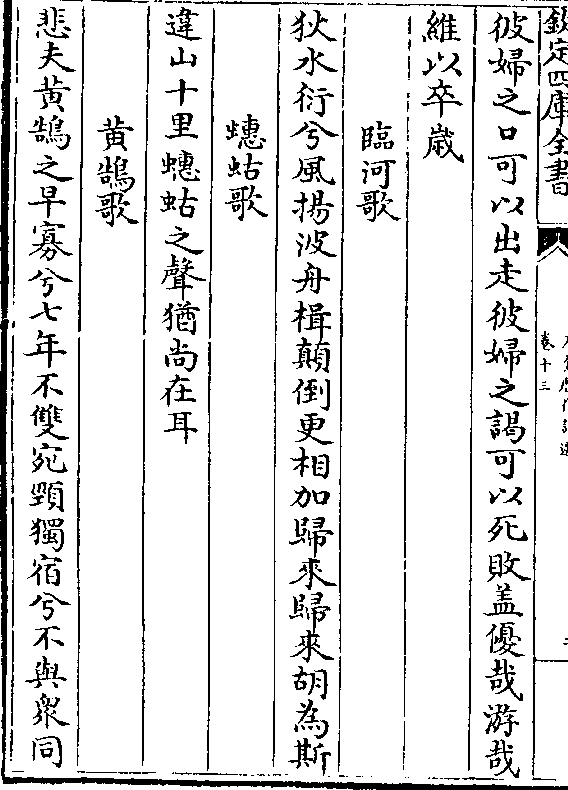 欽定四庫全書
卷十三
彼婦之口可以出走彼婦之謁可以死敗盖優哉游哉
維以卒歲
臨河歌
狄水衍兮風揚波舟楫顛倒更相加歸來歸來胡為斯
蟪蛄歌
違山十里蟪蛄之聲猶尚在耳
黄鵠歌
悲夫黄鵠之早寡兮七年不雙宛頸獨宿兮不與衆同